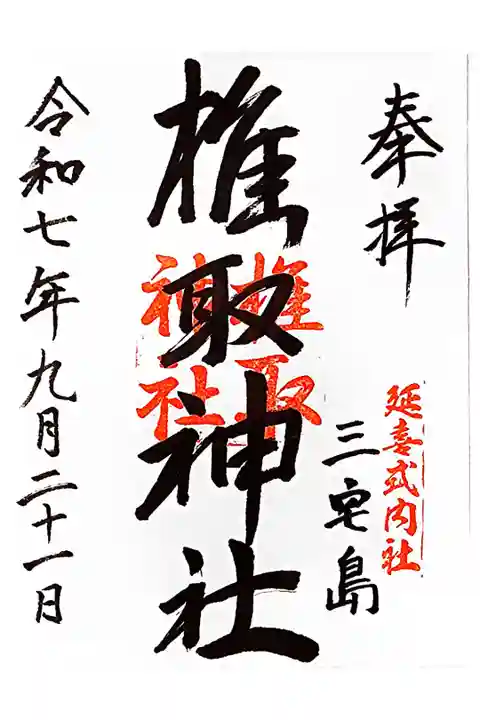 奉拝
延喜式内社
三宅島
椎取神社
椎取神社
令和七年九月二十一日